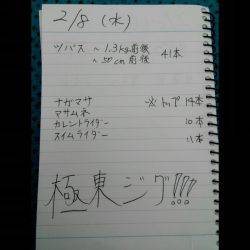 2/8 (水)
ツバス ~1.3kg前後 41本
~50cm前後
ナガマサ ※トップ 14本
マサムネ
カレントライダー 10本
スイムライダー 11本
極東ジグ!!!